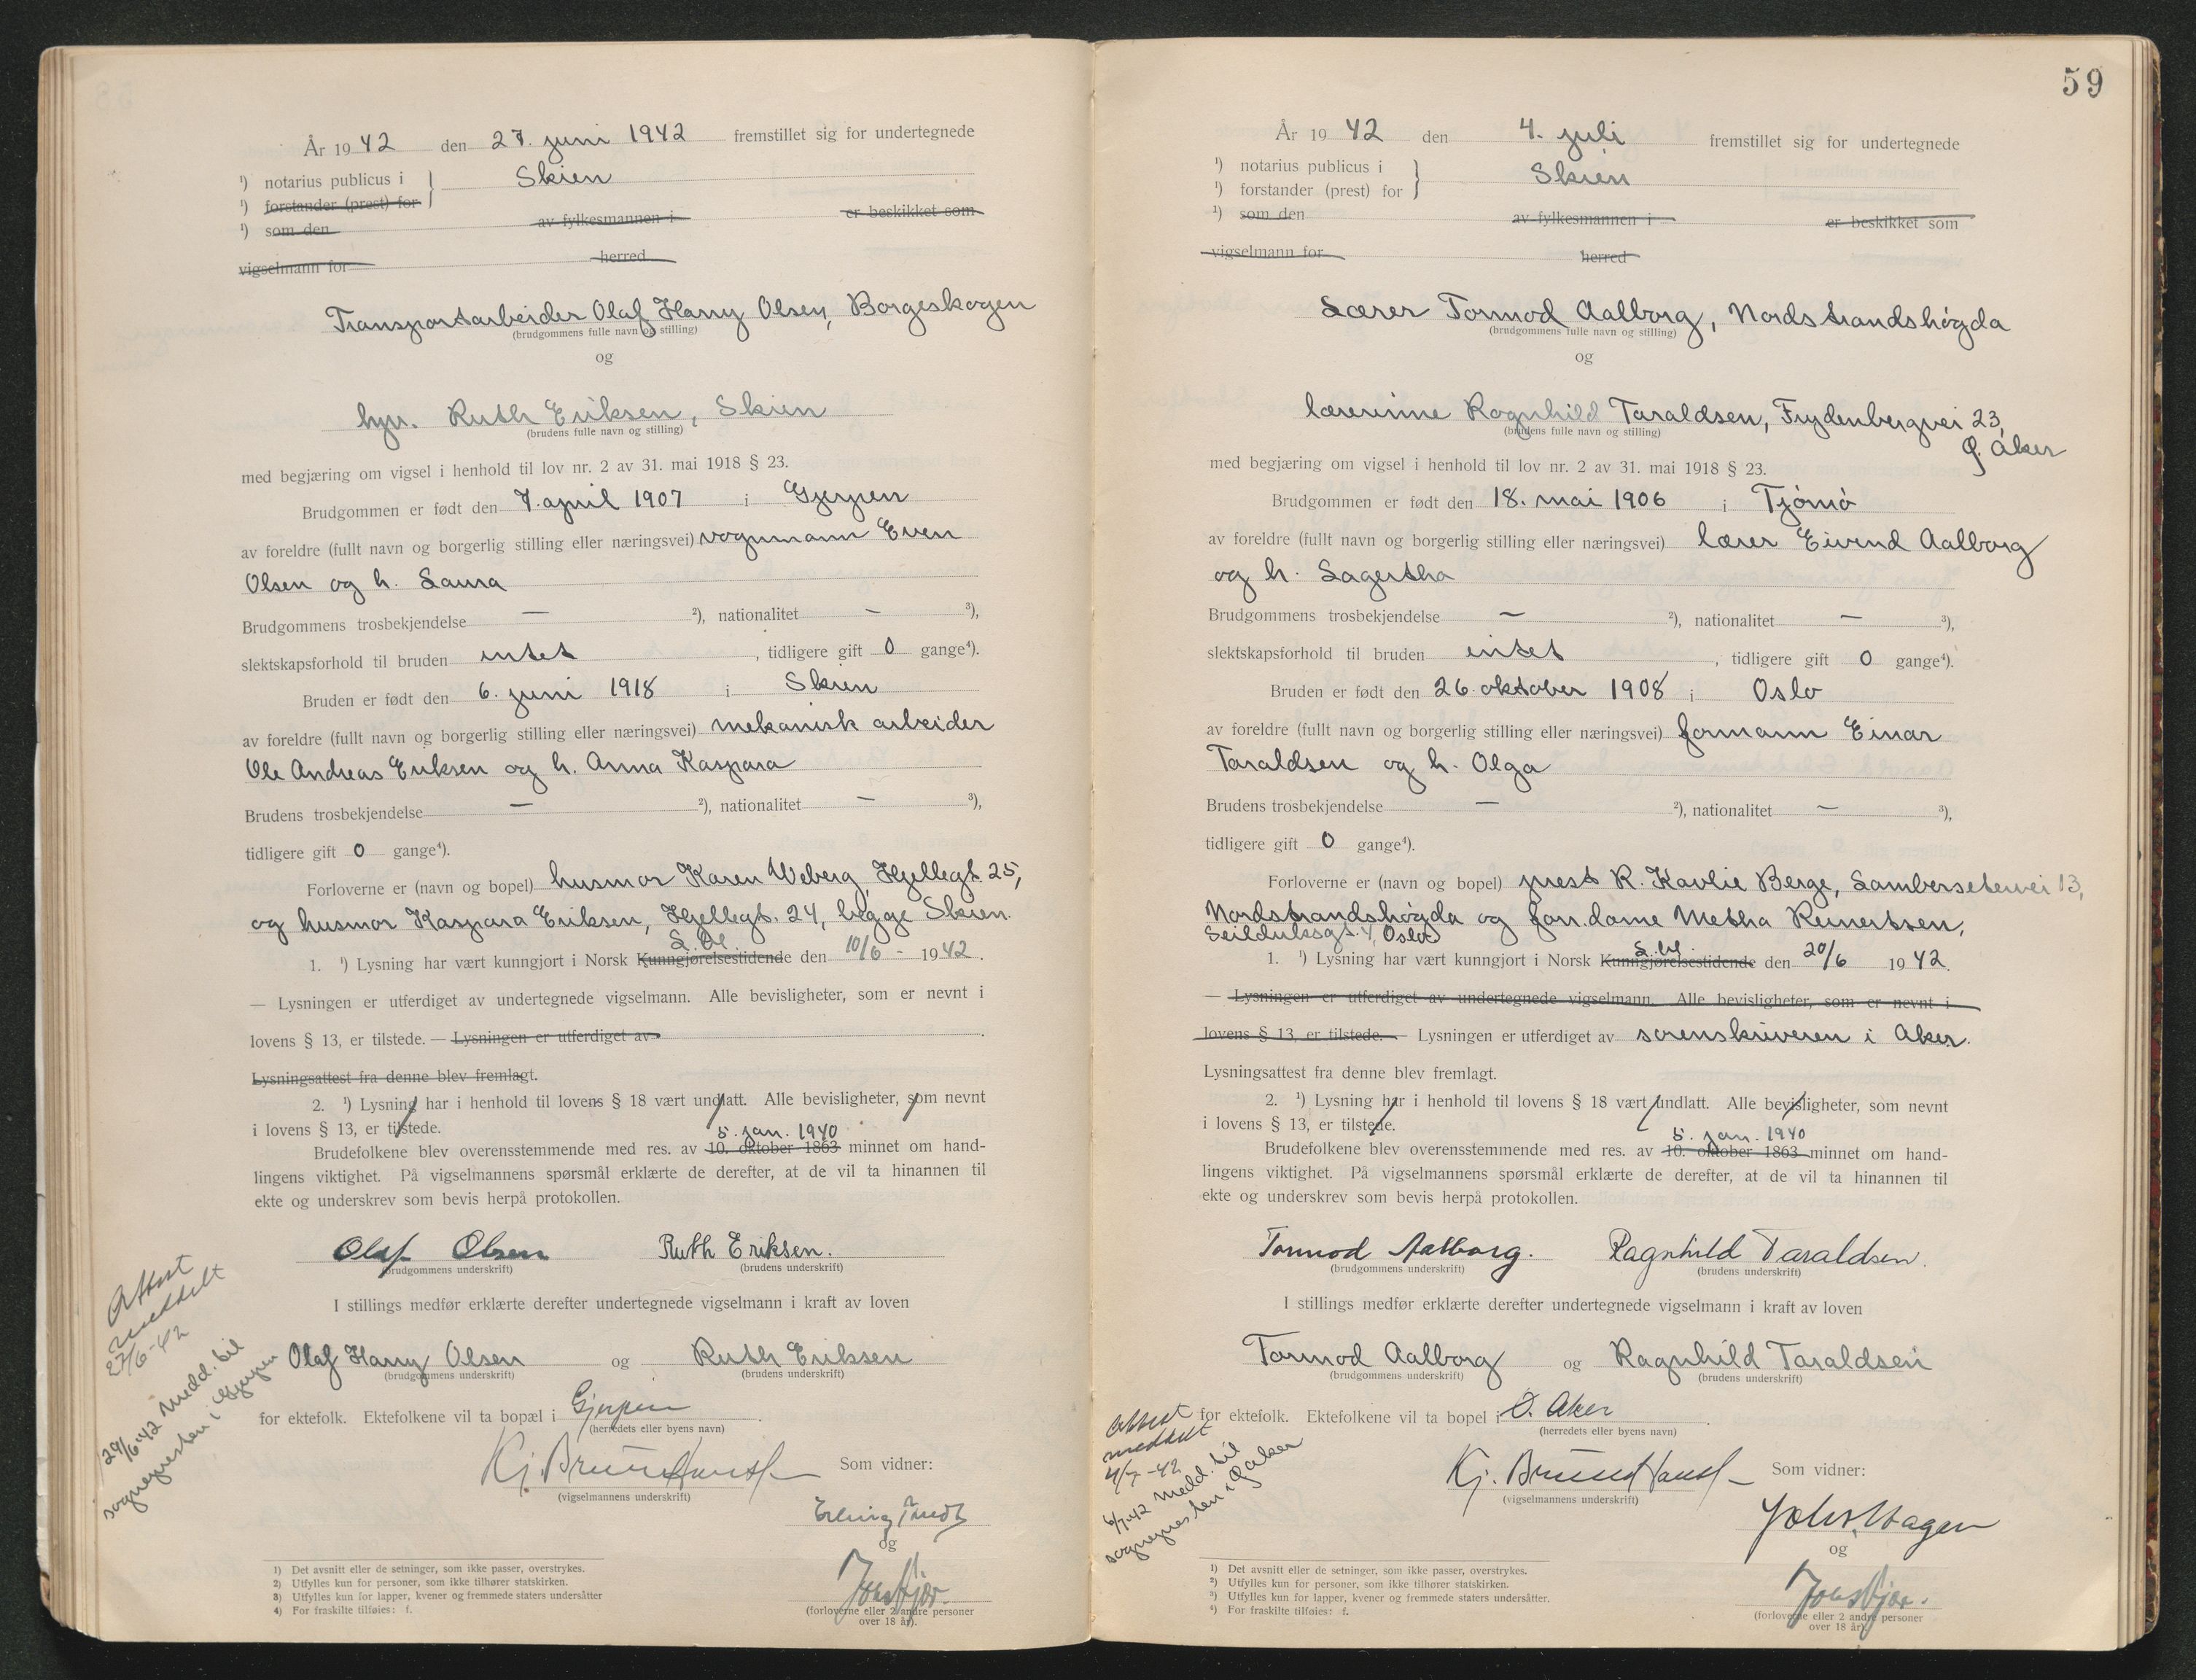 År 1942 den 27. juni 1942 fremstillet sig for undertegnede
¹) notarius publicus i } Skien
¹) forstander (prest) for
¹) som den av fylkesmannen i er beskikket som
vigselmann for herred
Transportarbeider Olaf Harry Olsen, Borgeskogen
(brudgommens fulle navn og stilling)
og
hgr. Ruth Eriksen, Skien
(brudens fulle navn og stilling)
med begjæring om vigsel i henhold til lov nr. 2 av 31. mai 1918 § 23.
Brudgommen er født den 7. april 1907 i Gjerpen
av foreldre (fullt navn og borgerlig stilling eller næringsvei) vognmann Even
Olsen og h. Laura
Brudgommens trosbekjendelse — ²), nationalitet — ³),
slektskapsforhold til bruden intet, tidligere gift 0 gange⁴).
Bruden er født den 6. juni 1918 i Skien
av foreldre (fullt navn og borgerlig stilling eller næringsvei) mekanisk arbeider
Ole Andreas Eriksen og h. Anna Kaspara
Brudens trosbekjendelse — ²), nationalitet — ³),
tidligere gift 0 gange⁴).
Forloverne er (navn og bopel) husmor Karen Weberg, Hjellegt. 25,
og husmor Kaspara Eriksen, Hjellegt. 24, begge Skien.
S. bl.
1. ¹) Lysning har vært kunngjort i Norsk Kunngjørelsestidende den 10/6 - 1942.
— Lysningen er utferdiget av undertegnede vigselmann. Alle bevisligheter, som er nevnt i
lovens § 13, er tilstede. — Lysningen er utferdiget av .
Lysningsattest fra denne blev fremlagt.
2. ¹) Lysning har i henhold til lovens § 18 vært undlatt. Alle bevisligheter, som nevnt
i lovens § 13, er tilstede.
5. jan. 1940
Brudefolkene blev overensstemmende med res. av 10. oktober 1863 minnet om hand-
lingens viktighet. På vigselmannens spørsmål erklærte de derefter, at de vil ta hinannen til
ekte og underskrev som bevis herpå protokollen.
Olaf Olsen Ruth Eriksen.
(brudgommens underskrift) (brudens underskrift)
I stillings medfør erklærte derefter undertegnede vigselmann i kraft av loven
Olaf Harry Olsen og Ruth Eriksen
(brudgommens underskrift) (brudens underskrift)
for ektefolk. Ektefolkene vil ta bopæl i Gjerpen.
(herredets eller byens navn)
Kj. Bruun Hansen Som vidner:
(vigselmannens underskrift)
Erling
og
(forloverne eller 2 andre personer
over 18 år).
Attest
meddelt
27/6-42
29/6-42 medd. til
sognepresten i Gjerpen
1) Det avsnitt eller de setninger, som ikke passer, overstrykes.
2) Utfylles kun for personer, som ikke tilhører statskirken.
3) Utfylles kun for lapper, kvener og fremmede staters undersåtter
4) For fraskilte tilføies: f.
59
År 1942 den 4. juli fremstillet sig for undertegnede
¹) notarius publicus i } Skien
¹) forstander (prest) for
¹) som den av fylkesmannen i er beskikket som
vigselmann for herred
Lærer Tormod Aalborg, Nordstrandshøgda
(brudgommens fulle navn og stilling)
og
lærerinne Ragnhild Taraldsen, Frydenbergvei 23,
Ø. Aker
(brudens fulle navn og stilling)
med begjæring om vigsel i henhold til lov nr. 2 av 31. mai 1918 § 23.
Brudgommen er født den 18. mai 1906 i Tjømø
av foreldre (fullt navn og borgerlig stilling eller næringsvei) lærer Eivind Aalborg
og h. Lagertha
Brudgommens trosbekjendelse — ²), nationalitet — ³),
slektskapsforhold til bruden intet, tidligere gift 0 gange⁴).
Bruden er født den 26. oktober 1908 i Oslo
av foreldre (fullt navn og borgerlig stilling eller næringsvei) formann Einar
Taraldsen og h. Olga
Brudens trosbekjendelse — ²), nationalitet — ³),
tidligere gift 0 gange⁴).
Forloverne er (navn og bopel) prest R. Kavlie Berge, Lambersetervei 13,
Nordstrandshøgda og forr.dame Metha Reinertsen,
Seilduksgt. 4, Oslo
S. bl.
1. ¹) Lysning har vært kunngjort i Norsk Kunngjørelsestidende den 20/6 1942.
— Lysningen er utferdiget av undertegnede vigselmann. Alle bevisligheter, som er nevnt i
lovens § 13, er tilstede. — Lysningen er utferdiget av sorenskriveren i Aker.
Lysningsattest fra denne blev fremlagt.
2. ¹) Lysning har i henhold til lovens § 18 vært undlatt. Alle bevisligheter, som nevnt
i lovens § 13, er tilstede.
5. jan. 1940
Brudefolkene blev overensstemmende med res. av 10. oktober 1863 minnet om hand-
lingens viktighet. På vigselmannens spørsmål erklærte de derefter, at de vil ta hinannen til
ekte og underskrev som bevis herpå protokollen.
Tormod Aalborg. Ragnhild Taraldsen.
(brudgommens underskrift) (brudens underskrift)
I stillings medfør erklærte derefter undertegnede vigselmann i kraft av loven
Tormod Aalborg og Ragnhild Taraldsen
(brudgommens underskrift) (brudens underskrift)
for ektefolk. Ektefolkene vil ta bopel i Ø. Aker.
(herredets eller byens navn)
Kj. Bruun Hansen Som vidner:
(vigselmannens underskrift)
Hagen
og
(forloverne eller 2 andre personer
over 18 år).
Attest
meddelt
4/7-42
6/7-42 medd. til
sognepresten i Ø. Aker
1) Det avsnitt eller de setninger, som ikke passer, overstrykes.
2) Utfylles kun for personer, som ikke tilhører statskirken.
3) Utfylles kun for lapper, kvener og fremmede staters undersåtter.
4) For fraskilte tilføies: f.